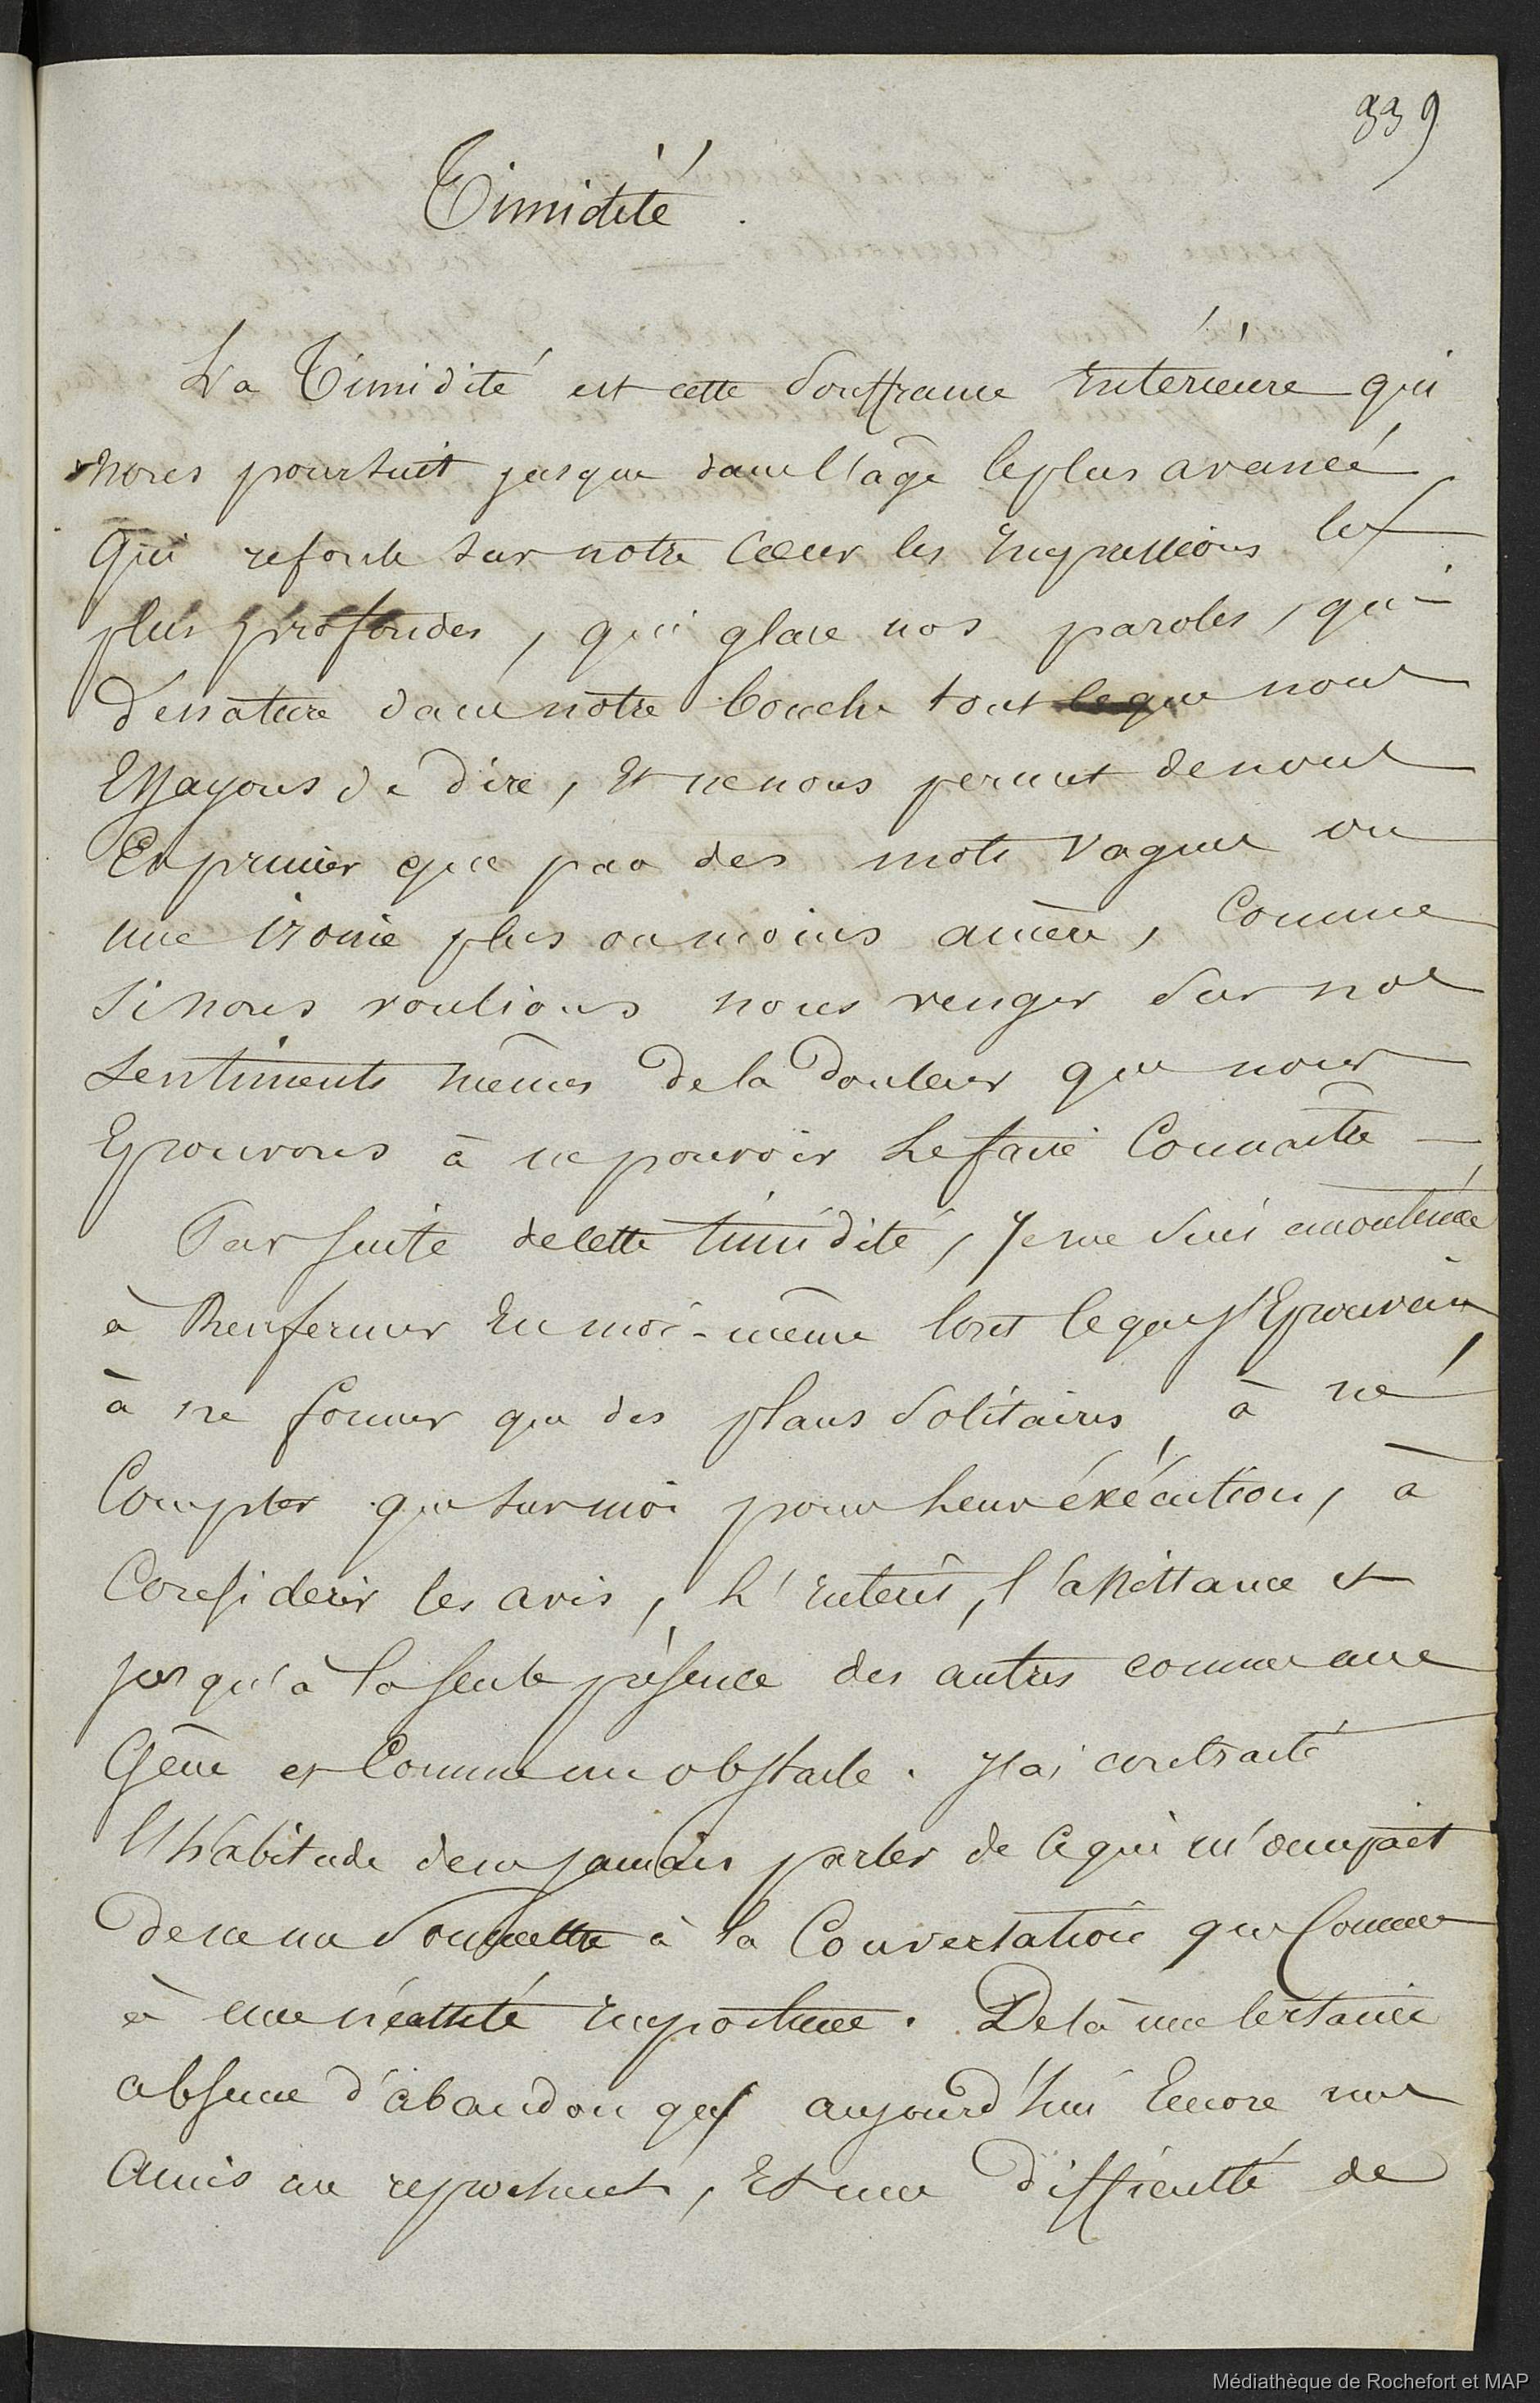 339
Timidité.
La Timidité est cette Souffrance Intérieure qui
nous poursuit jusque dans l'âge le plus avancé,
Qui refoule sur notre Cœur les Impressions les
plus profondes, qui glace nos paroles, qui
Dénature dans notre bouche tout ce que nous
Essayons de dire, Et ne nous permet de nous
Exprimer que par des mots vagues ou
une ironie plus ou moins amère, Comme
si nous voulions nous venger sur nos
Sentiments mêmes De la Douleur que nous
Eprouvons à ne pouvoir Le faire Connaître —
Par suite de cette timidité, Je me suis
à Renfermer En moi-même tout ce que J'Eprouvais,
à ne former que des plans Solitaires, à ne
Compter que sur moi pour Leur éxécution, à
Considérer les avis, L'Interêt, l'assistance et
jusqu'à la seule présence des autres comme une
Gêne et Comme un obstacle. J'ai contracté
l'habitude de ne jamais parler de ce qui m'occupait
De ne me Soumettre à la Conversation que Comme
à une nécessité Importune. De là une certaine
absence d'abandon que aujourd'hui Encore mes
Amis me reprochent, Et une Difficulté de
Médiathèque de Rochefort et MAP